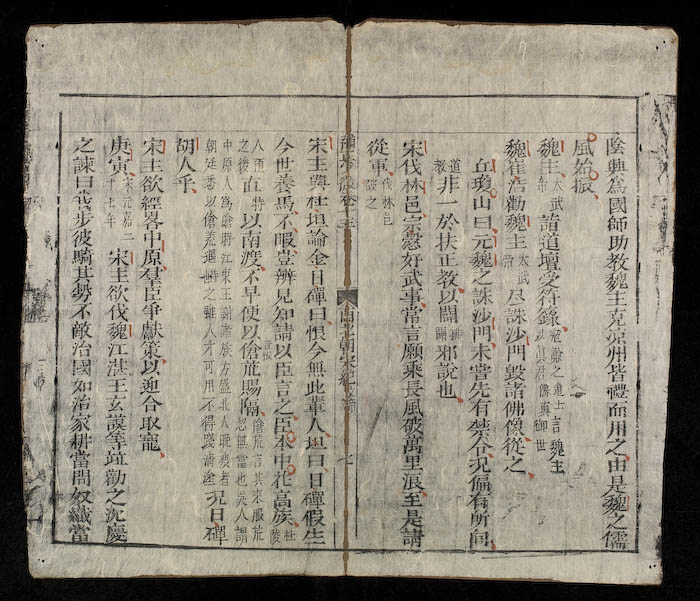 陰興爲國師助教魏主克涼州皆禮而用之由是魏之儒
風始振
魏主太武帝詣道壇受符籙寇謙之道士言魏主以真君佛真御世
魏崔浩勸魏主太武帝尽誅沙門毀諸佛像從之
丘瓊山曰元魏之誅沙門未嘗先有禁令况偏有所同
道教非一於扶正教以闢排闢邪說也
宋伐林邑宗慤好武事常言願乘長風破萬里浪至是請
從軍伐林邑破之
宋主與杜坦論金日磾曰恨今無此輩人坦曰日磾假生
今世養馬不暇豈辨見知請以臣言之臣本中花高族杜陵
人預之後直特以南渡不早便以傖荒賜隔傖荒言其來服荒忽無常也吳人謂
中原人爲傖時江東王謝諸族方盛北人晚來者
朝廷悉以傖荒遇排之雖人才可用不得踐清途况日磾
胡人乎
宋主欲經畧中原羣臣争獻策以迎合取寵
庚寅宋元嘉二十七年宋主欲伐魏江湛王玄謨等竝勸之沈慶
之諫曰我步彼騎其勢不敵治國如治家耕當問奴織當